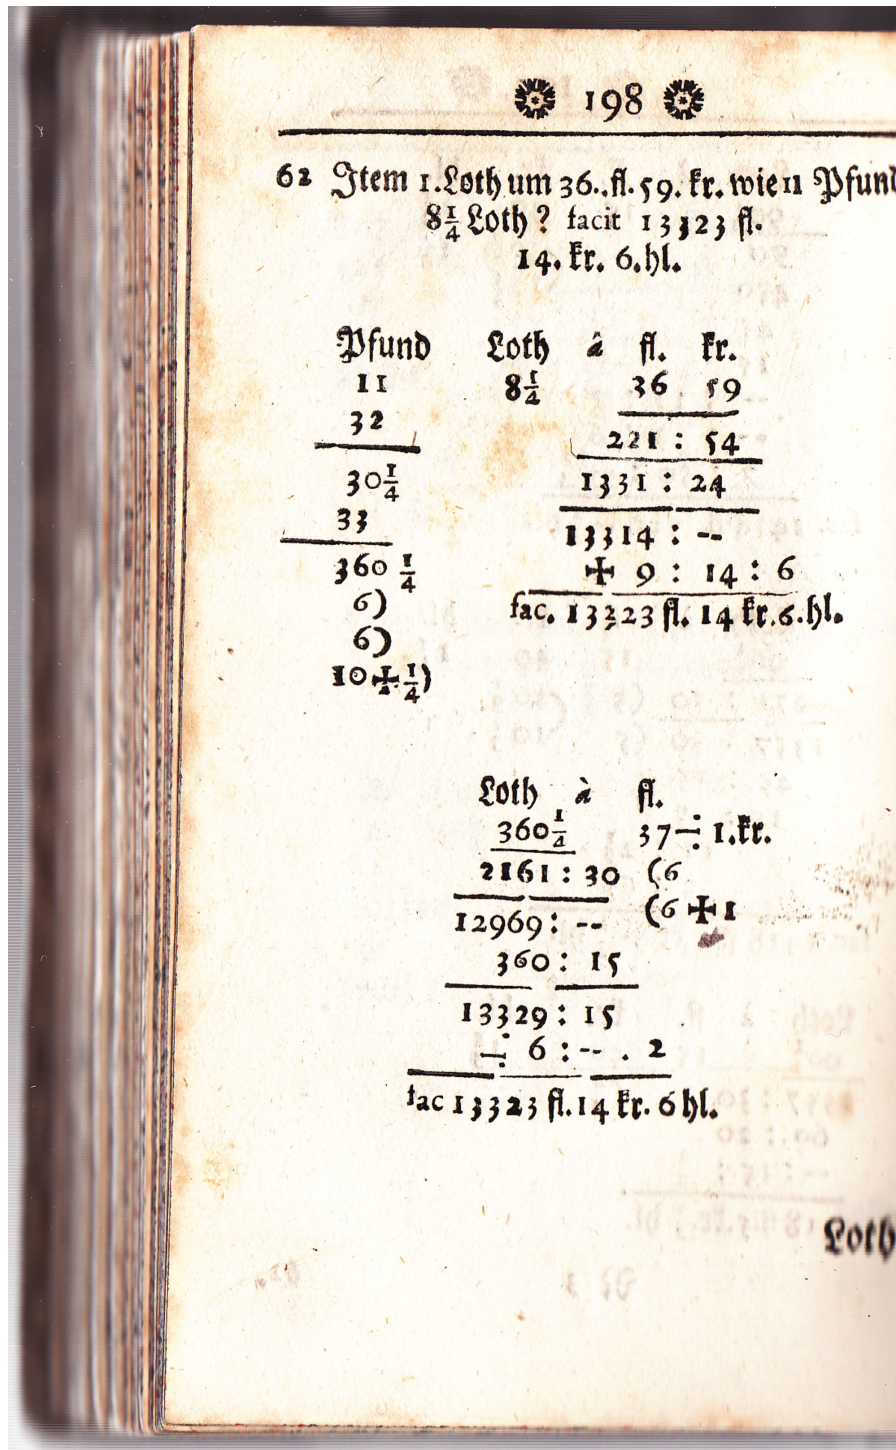 198
62 Item 1. Loth um 36., fl. 59. kr. wie 11 Pfund
8 1/4 Loth? facit 13323 fl.
14. kr. 6. hl.
Pfund Loth â fl. kr.
11 8 1/4 36 59
32 221 : 54
30 1/4 1331 : 24
33 13314 : --
360 1/4 ✠ 9 : 14 : 6
6) fac. 13323 fl. 14 kr. 6. hl.
6)
10 ✠ 1/2 . 1/4)
Loth à fl.
360 1/4 37 ÷ 1. kr.
2161 : 30 (6
12969 : -- (6 ✠ 1
360 : 15
13329 : 15
÷ 6 : -- . 2
fac 13323 fl. 14 kr. 6 hl.
Loth